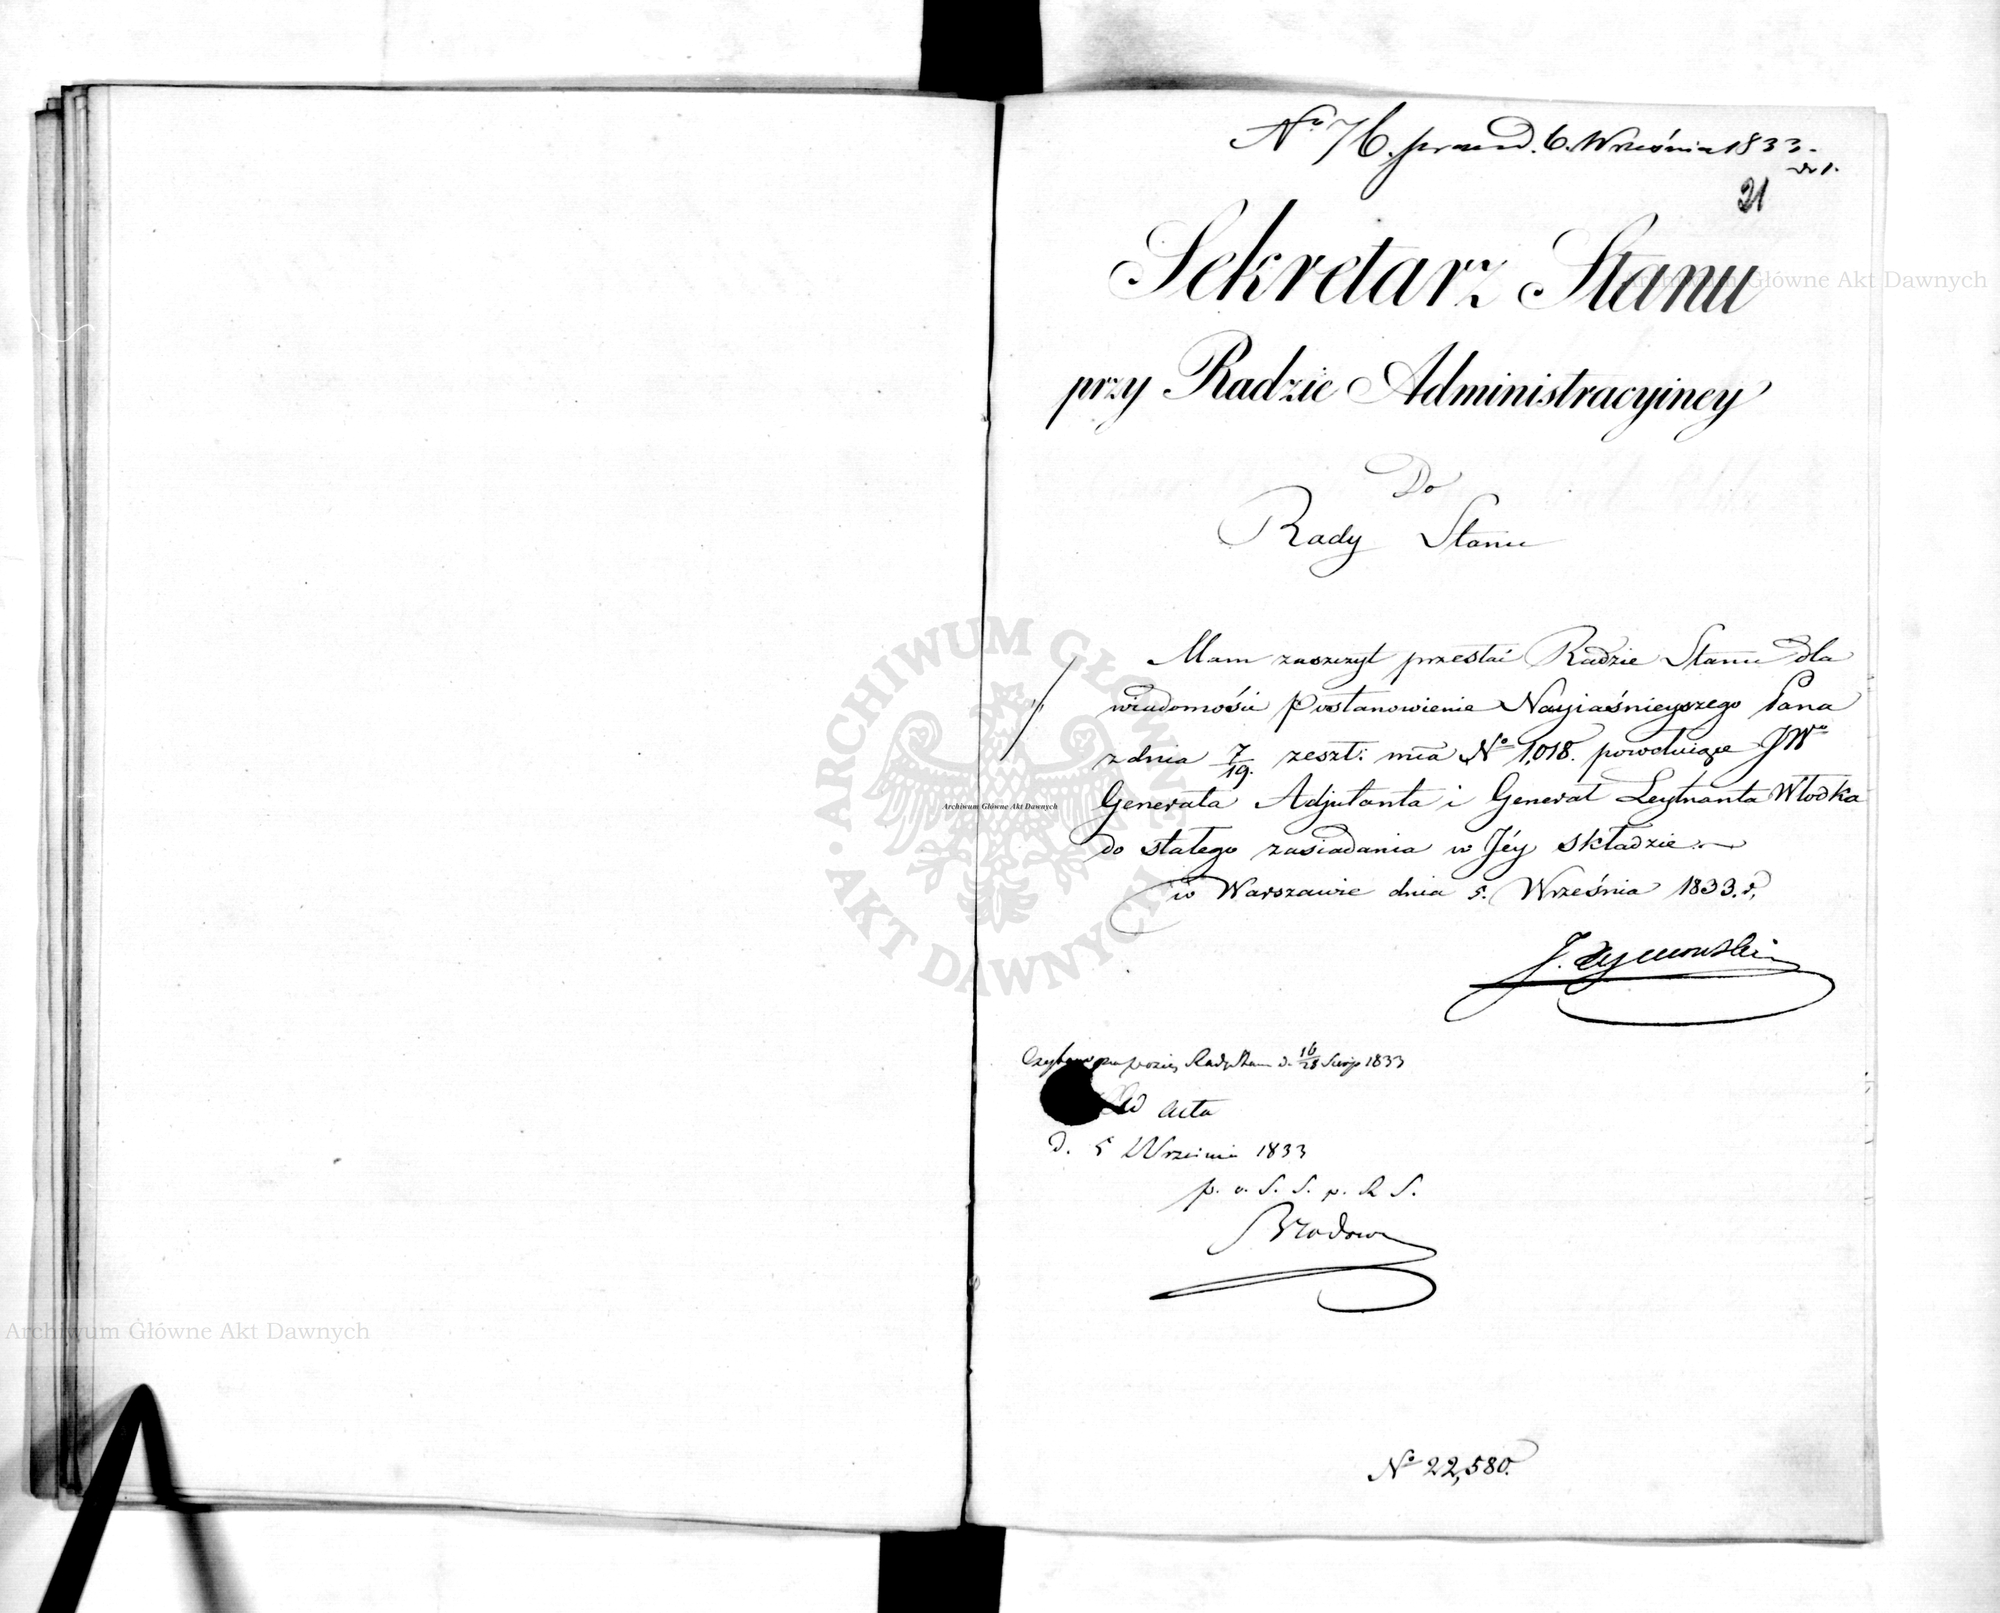 No 76. praes d. 6. Września 1833.
21
Sekretarz Stanu
przy Radzie Administracyiney
Do
Rady Stanu
Mam zaszczyt przesłać Radzie Stanu dla
wiadomości Postanowienie Nayiaśnieyszego Pana
z dnia 7/19. zeszł: mca No 1,018. powołuiące JWo
Generała Adjutanta i Generał Leytnanta Włodka
do stałego zasiadania w Jéy składzie.
w Warszawie dnia 5. Września 1833. r.
J. Tymowski
Czytano na posie. Rady Stanu d. 16/28 Sierp 1833
Ad acta
d. 5 Wrześnie 1833
p. o. S. S. p. R S.
No 22,580.
ARCHIWUM GŁÓWNE AKT DAWNYCH
Archiwum Główne Akt Dawnych
Archiwum Główne Akt Dawnych
Archiwum Główne Akt Dawnych